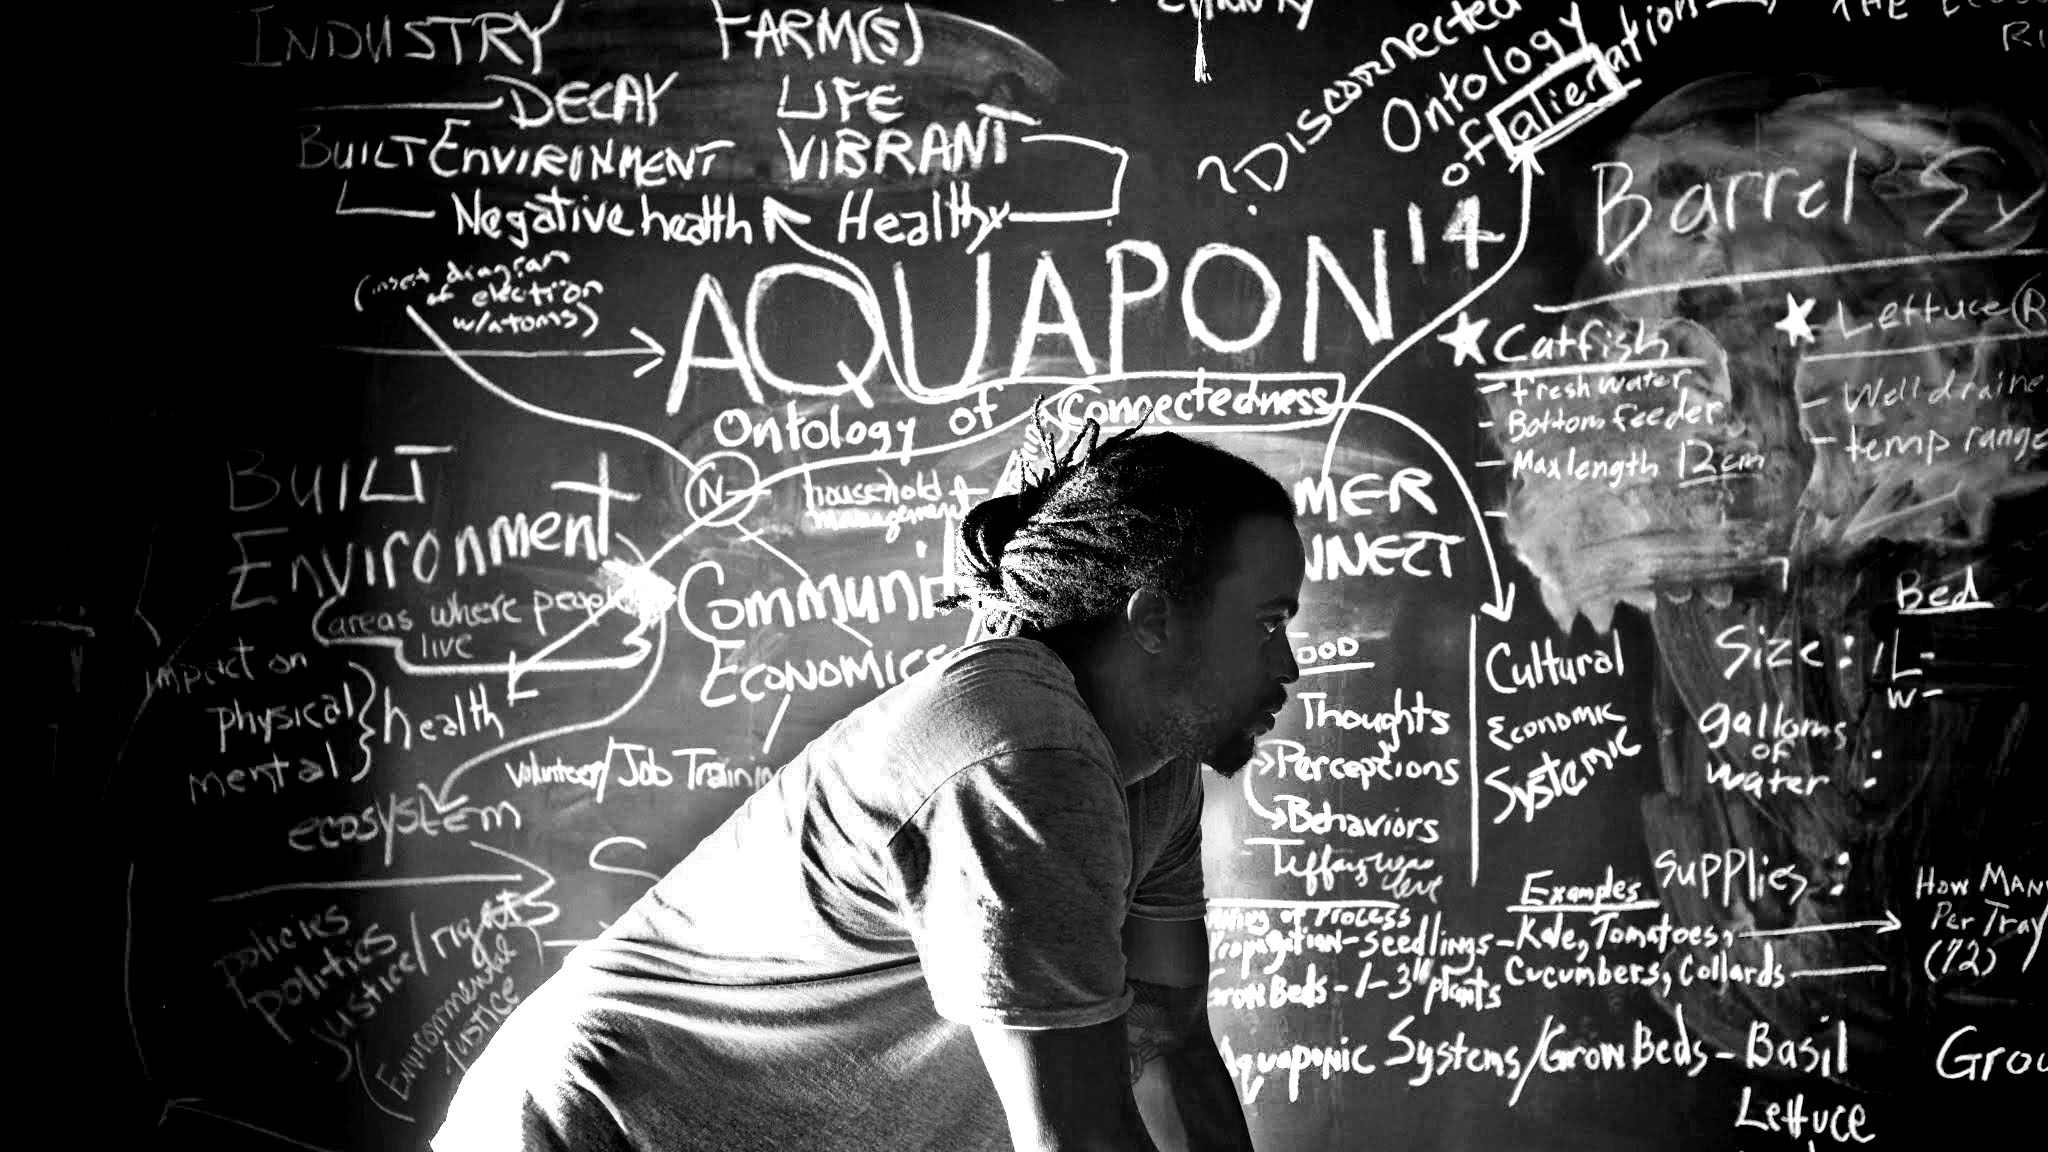 CHARITY
INDUSTRY FARM(S)
DECAY LIFE
BUILT ENVIRONMENT VIBRANT
Negative health Healthy
(insert diagram
of election
w/atoms)
AQUAPON '14
Ontology of Connectedness
?Disconnected
Ontology
of alienation
Barrel Sy
Catfish
- freshwater
- Bottom feeder
- Max length 12cm
-
Lettuce (R
- Well draine
- temp range
BUILT
Environment
(areas where people
live
impact on
physical
mental } health
ecosystem
policies
politics
justice/rights
Environmental
Justice
N-
household
management
Commun
ECONOMICS
Volunteer/Job Trainin
MER
NNECT
OOD
Thoughts
Perceptions
Behaviors
Tiffany was here
Cultural
ECONOMIC
Systemic
Bed
Size: L-
W-
gallons
of
water :
Supplies:
of Process
Propagation-Seedlings-Kale, Tomatoes,
Examples
Cucumbers, Collards
Grow Beds - 1-3" plants
HOW MAN
PER TRAY
(72)
Aquaponic Systems/Grow Beds - Basil
Lettuce
Grou